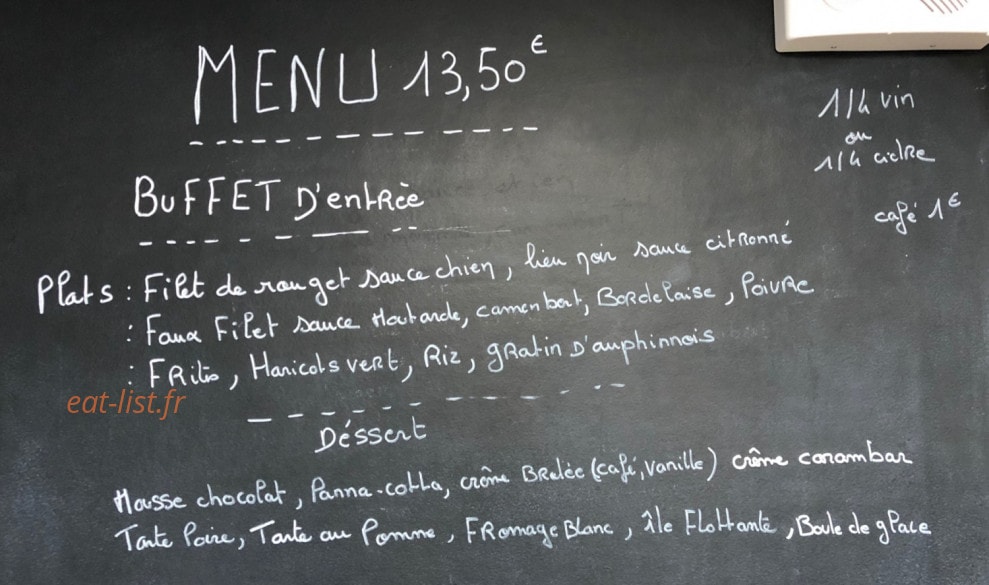 MENU 13,50€
1/4 vin
ou
1/4 cidre
BUFFET D'entrèe
café 1€
Plats : Filet de rouget sauce chien, lieu noir sauce citronné
: Faux Filet sauce Moutarde, camenbert, Bordelaise, Poivre
: FRites, Haricots vert, Riz, gratin D'auphinnois
eat-list.fr
Déssert
Mousse chocolat, Panna-cotta, crême Brulée (café, vanille) crême carambar
Tarte Poire, Tarte au Pomme, FRomage Blanc, île Flottante, Boule de glace